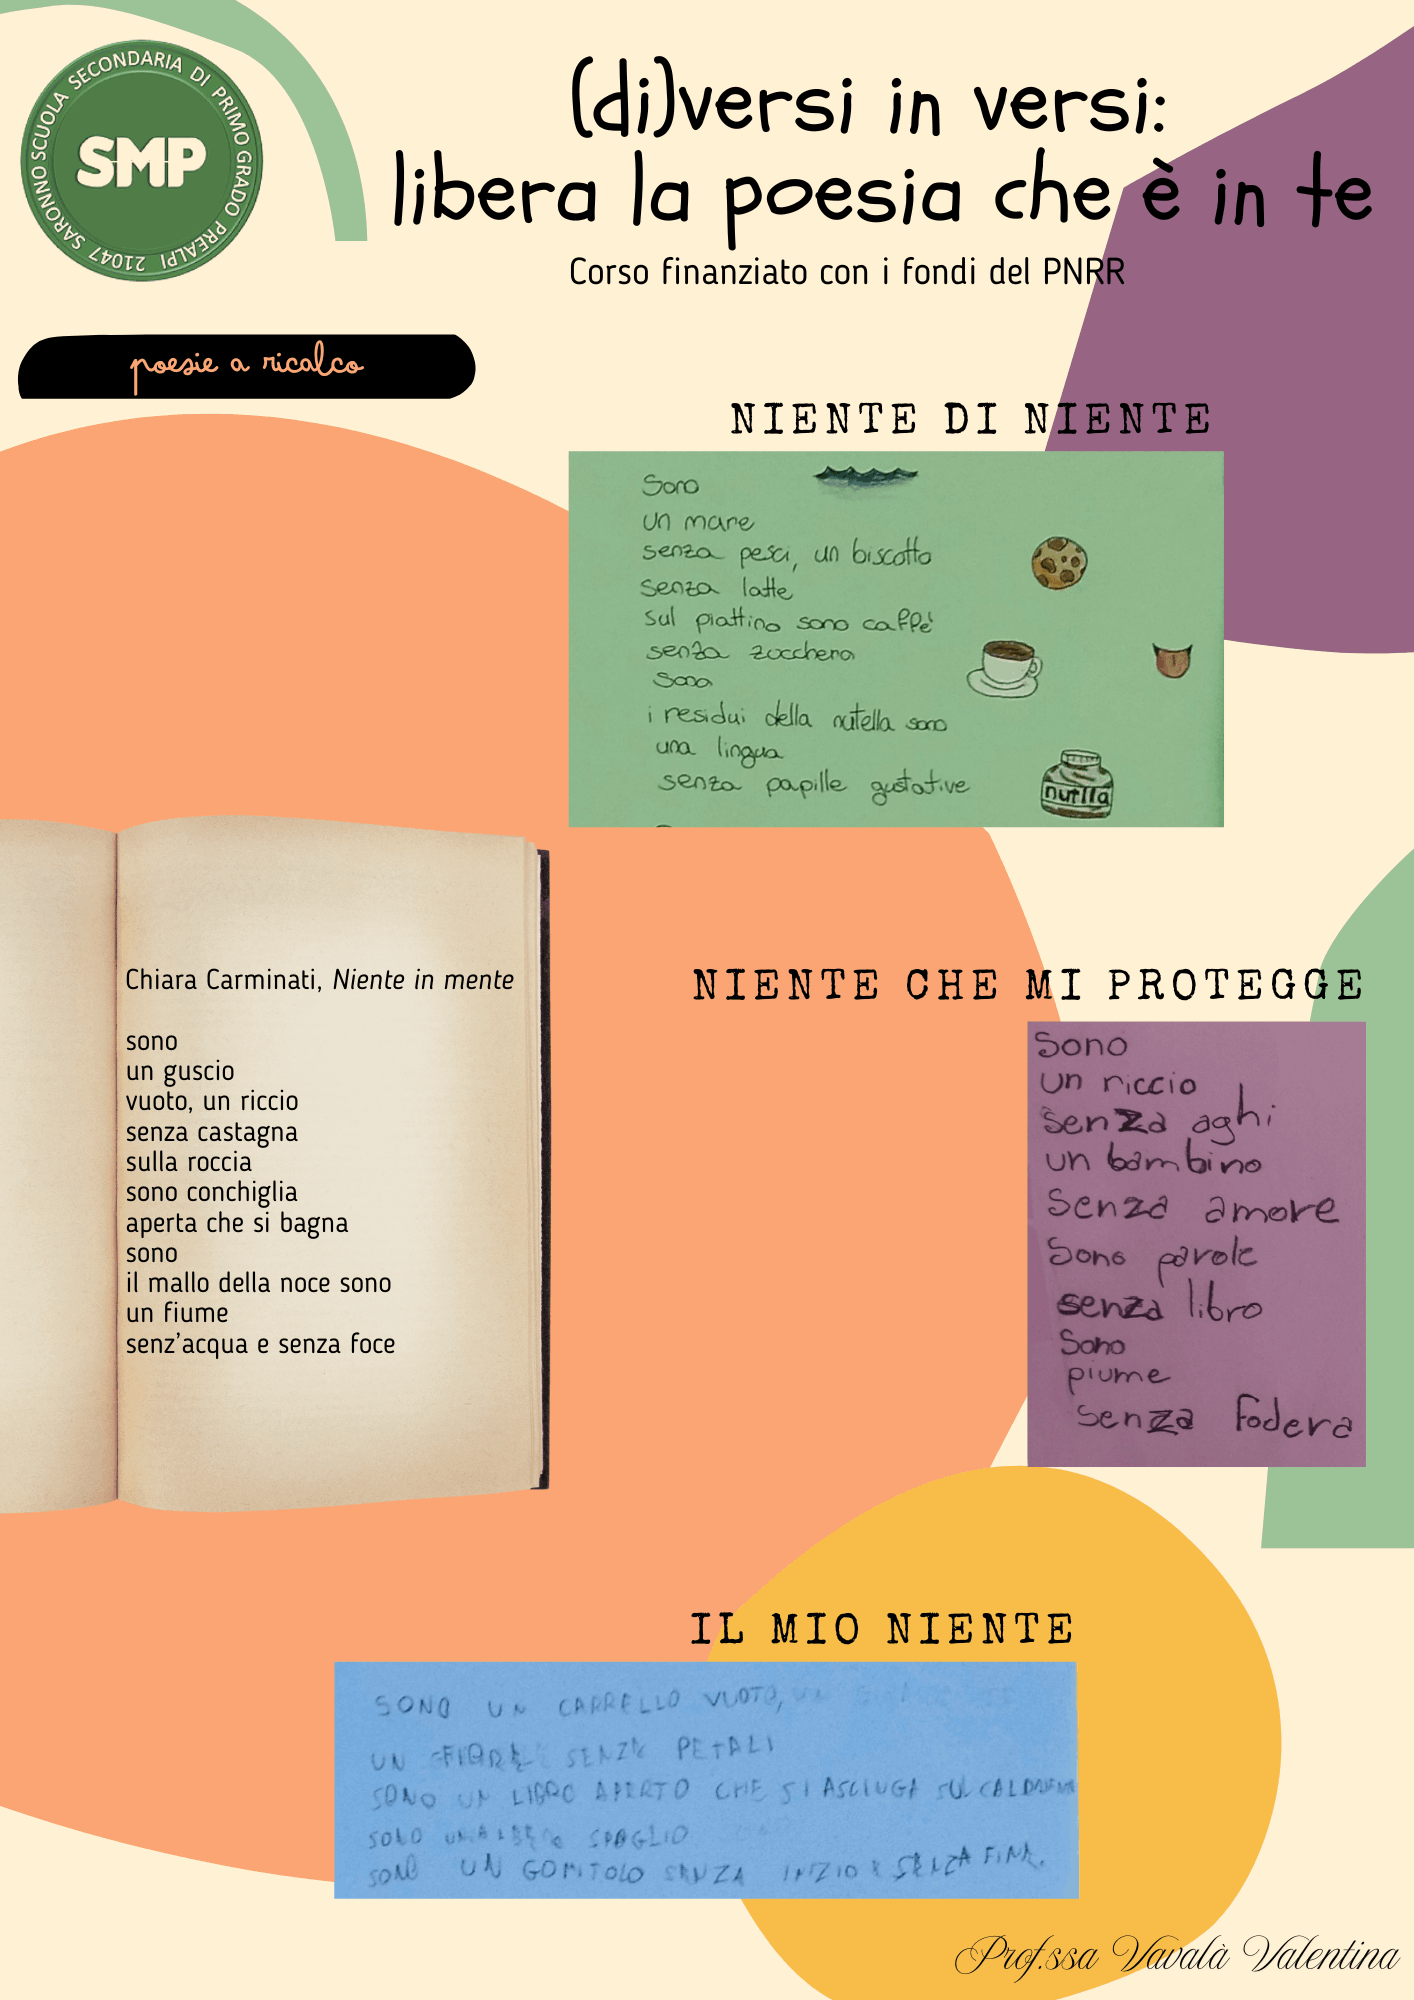 SARONNO SCUOLA SECONDARIA DI PRIMO GRADO PREALPI 21047
SMP
(di)versi in versi:
libera la poesia che è in te
Corso finanziato con i fondi del PNRR
poesie a ricalco
NIENTE DI NIENTE
Sono
un mare
senza pesci, un biscotto
senza latte
sul piattino sono caffè
senza zucchero
Sono
i residui della nutella sono
una lingua
senza papille gustative
nutlla
Chiara Carminati, Niente in mente
sono
un guscio
vuoto, un riccio
senza castagna
sulla roccia
sono conchiglia
aperta che si bagna
sono
il mallo della noce sono
un fiume
senz'acqua e senza foce
NIENTE CHE MI PROTEGGE
Sono
un riccio
senza aghi
un bambino
senza amore
Sono parole
senza libro
Sono
piume
senza fodera
IL MIO NIENTE
SONO UN CARRELLO VUOTO,
UN FIORE SENZA PETALI
SONO UN LIBRO APERTO CHE SI ASCIUGA SUL
SONO UN ALBERO SPOGLIO
SONO UN GOMITOLO SENZA INIZIO E SENZA FINE.
Prof.ssa Vavalà Valentina